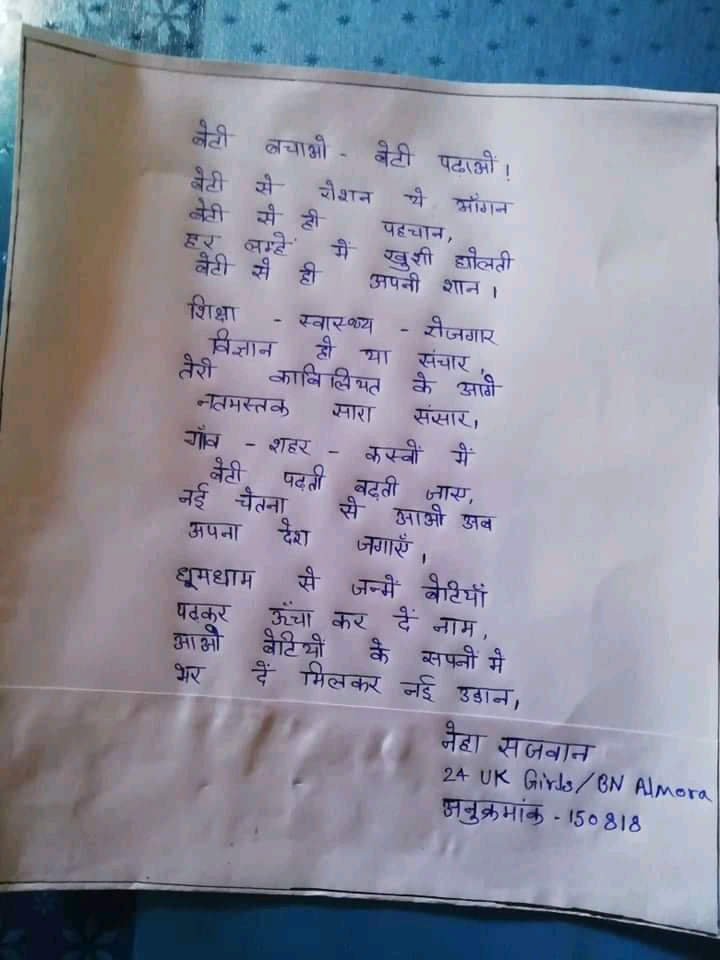 बेटी बचाओ - बेटी पढाओं !
बेटी से रोशन ये आँगन
बेटी से ही पहचान,
हर लम्हें में खुशी घोलती
बेटी से ही अपनी शान ।
शिक्षा - स्वास्थ्य - रोजगार
विज्ञान हो या संचार,
तेरी काबिलियत के आगे
नतमस्तक सारा संसार,
गाँव - शहर - कस्बों में
बेटी पढ़ती बढ़ती जाए,
नई चेतना से आओ अब
अपना देश जगाएँ,
धूमधाम से जन्में बेटियाँ
पढकर ऊँचा कर दें नाम,
आओ बेटियों के सपनों में
भर दें मिलकर नई उडान,
नेहा सजवान
24 UK Girls/BN Almora
अनुक्रमांक - 150818